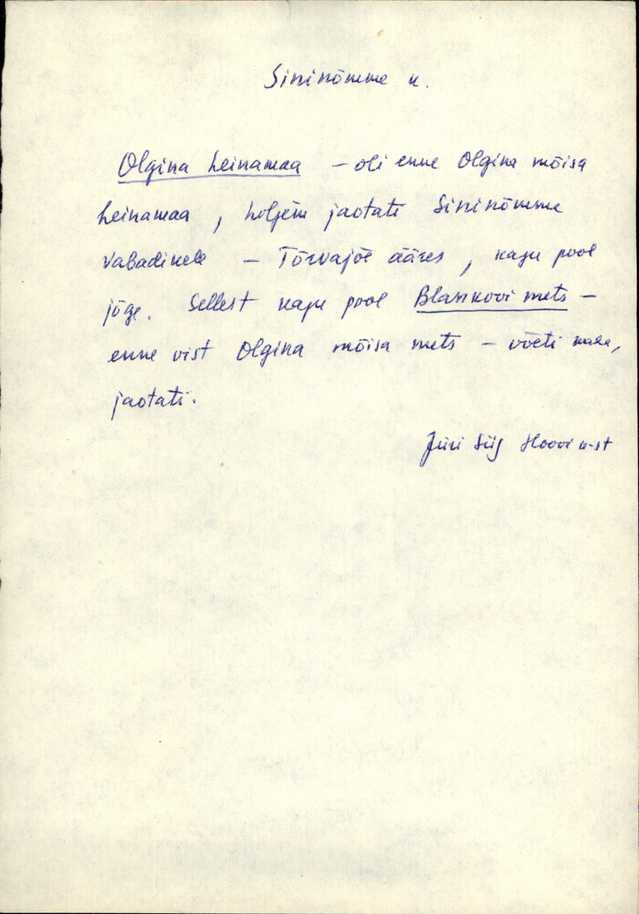 Sininõmme k.
Olgina heinamaa – oli enne Olgina mõisa
heinamaa, hiljem jaotati Sininõmme
vabadikele – Tõrvajõe ääres, kagu pool
jõge. Sellest kagu pool Blankovi mets –
enne vist Olgina mõisa mets – võeti maha,
jaotati.
Jüri Siig Hoovi k-st